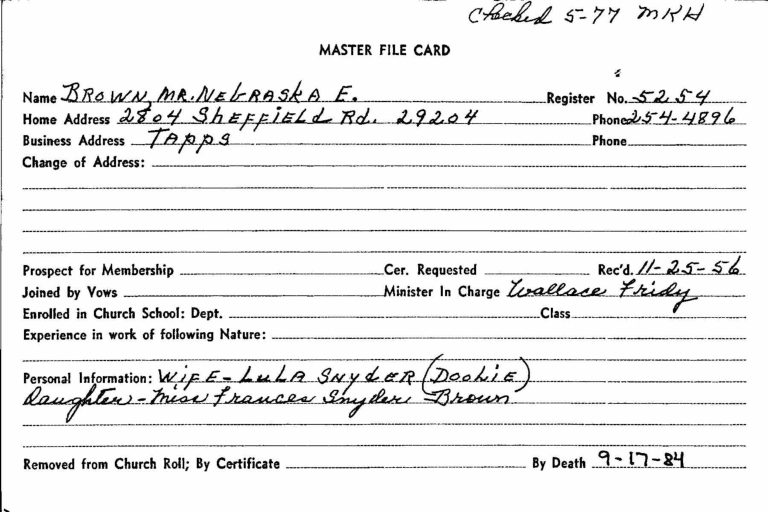 Checked 5-77 MKH
MASTER FILE CARD
Name BROWN, MR. NEbRASKA E. Register No. 5254
Home Address 2804 SHEFFIELD Rd. 29204 Phone 254-4896
Business Address TAPPS Phone
Change of Address:
Prospect for Membership Cer. Requested Rec'd. 11-25-56
Joined by Vows Minister In Charge Wallace Fridy
Enrolled in Church School: Dept. Class
Experience in work of following Nature:
Personal Information: WIFE - LuLA SNYdER (DooLiE)
Daughter - Miss Frances Snyder Brown
Removed from Church Roll; By Certificate By Death 9-17-84